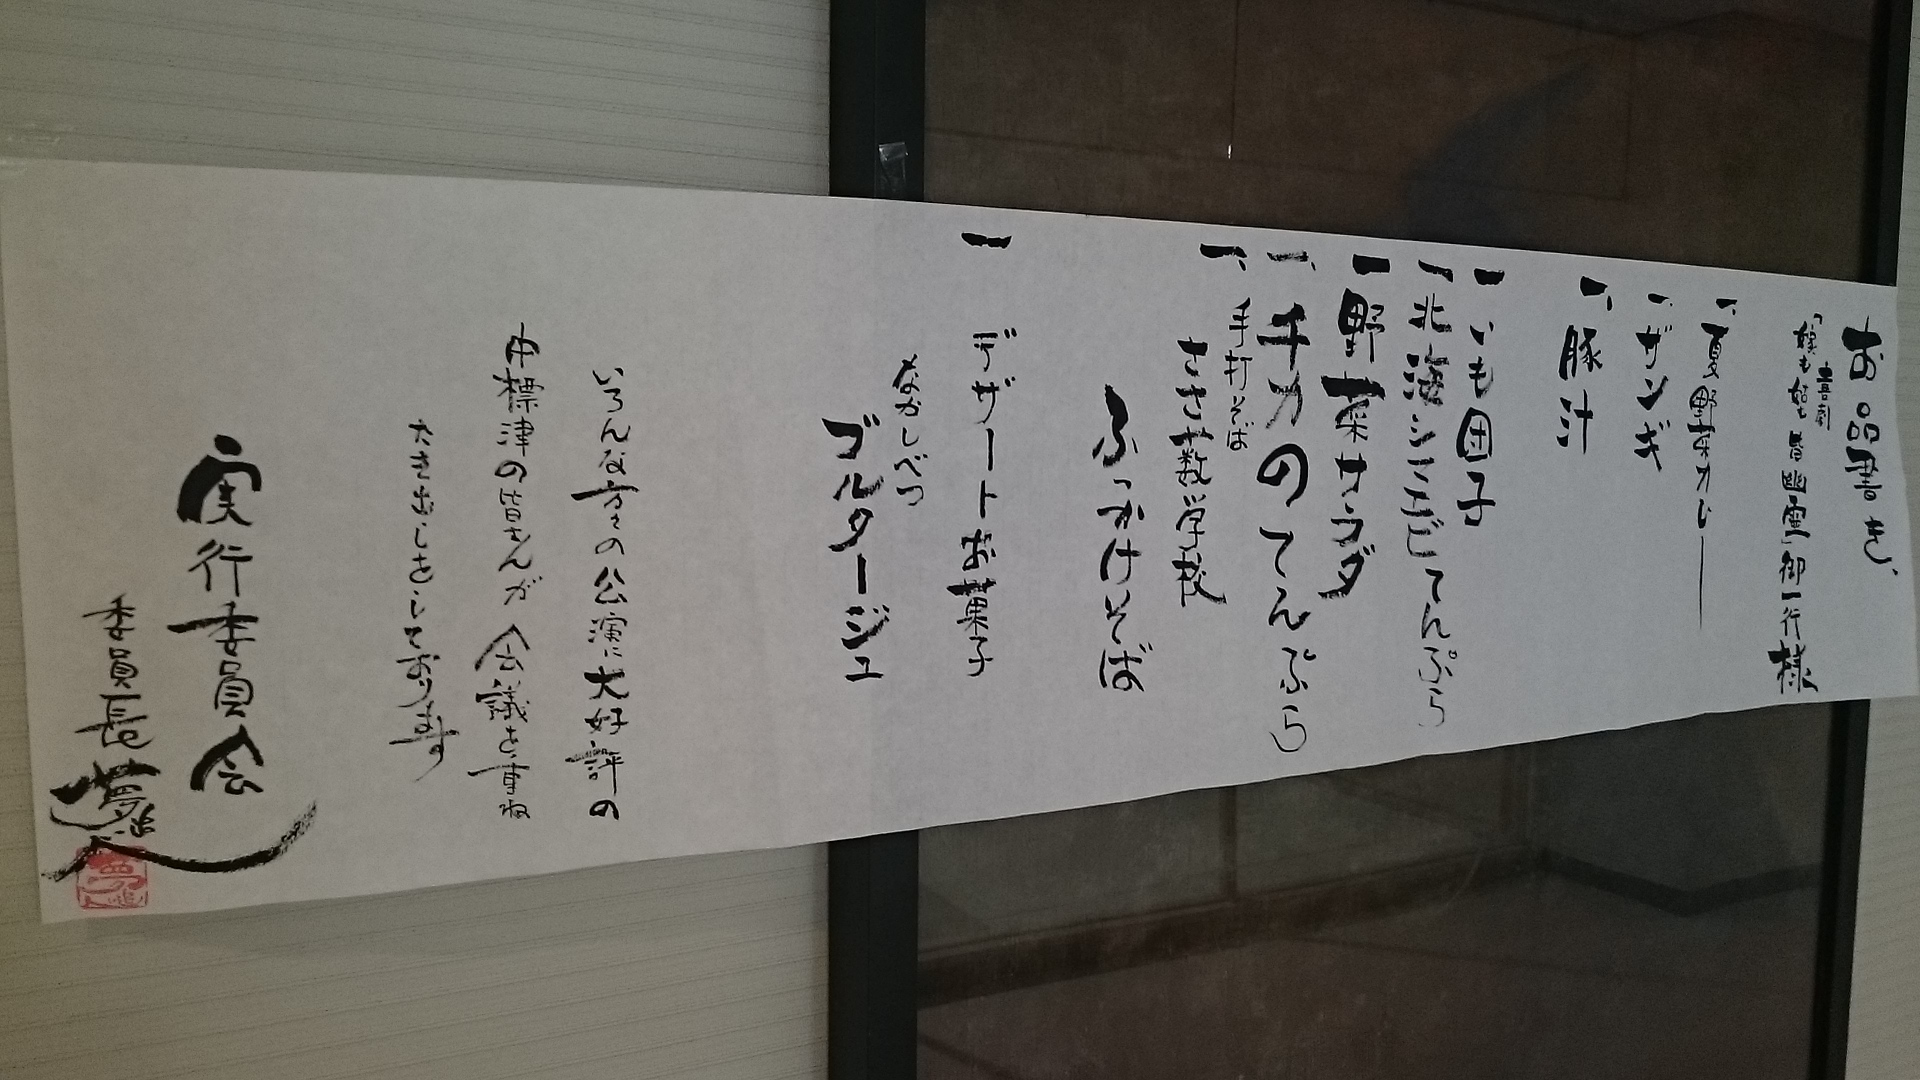 お品書き
喜劇
「嫁も姑も皆幽霊」御一行様
一、夏野菜カレー
一、ザンギ
一、豚汁
一、いも団子
一、北海シマエビてんぷら
一 野菜サラダ
一、チカのてんぷら
一、手打そば
ささ藪学校
ぶっかけそば
一 デザートお菓子
なかしべつ
ゴルタージュ
いろんな方々の公演に大好評の
中標津の皆さんが会議を重ね
たき出しをしております
実行委員会
委員長